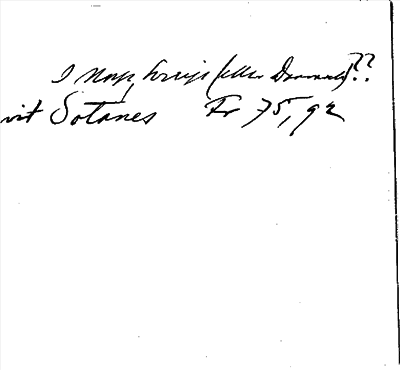 I Norge (eller Danmark)??
vit Sotanes Fr 75,92